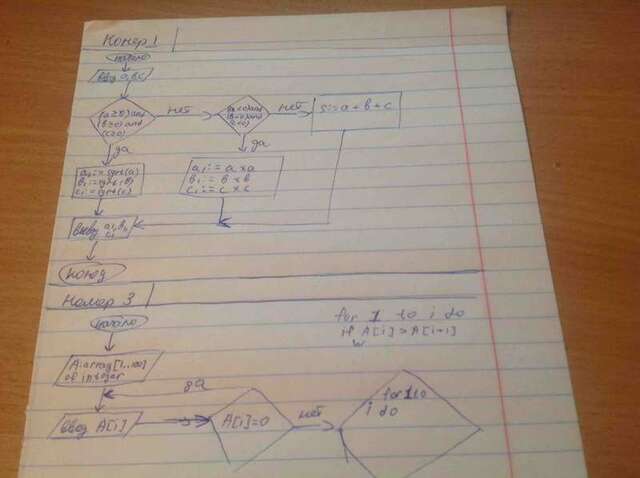 Номер 1
начало
ввод a, b, c
(a≥0) and
(b≥0) and
(c≥0)
нет
нет
s:=a+b+c
да
да
a1:=sqrt(a)
b1:=sqrt(b)
c1:=sqrt(c)
a1:=a*a
b1:=b*b
c1:=c*c
вывод a1, b1,
c1
конец
Номер 3
начало
for 1 to i do
if A[i]>A[i+1]
A:array[1..100]
of integer
да
ввод A[i]
A[i]=0
нет
for 1 to
i do